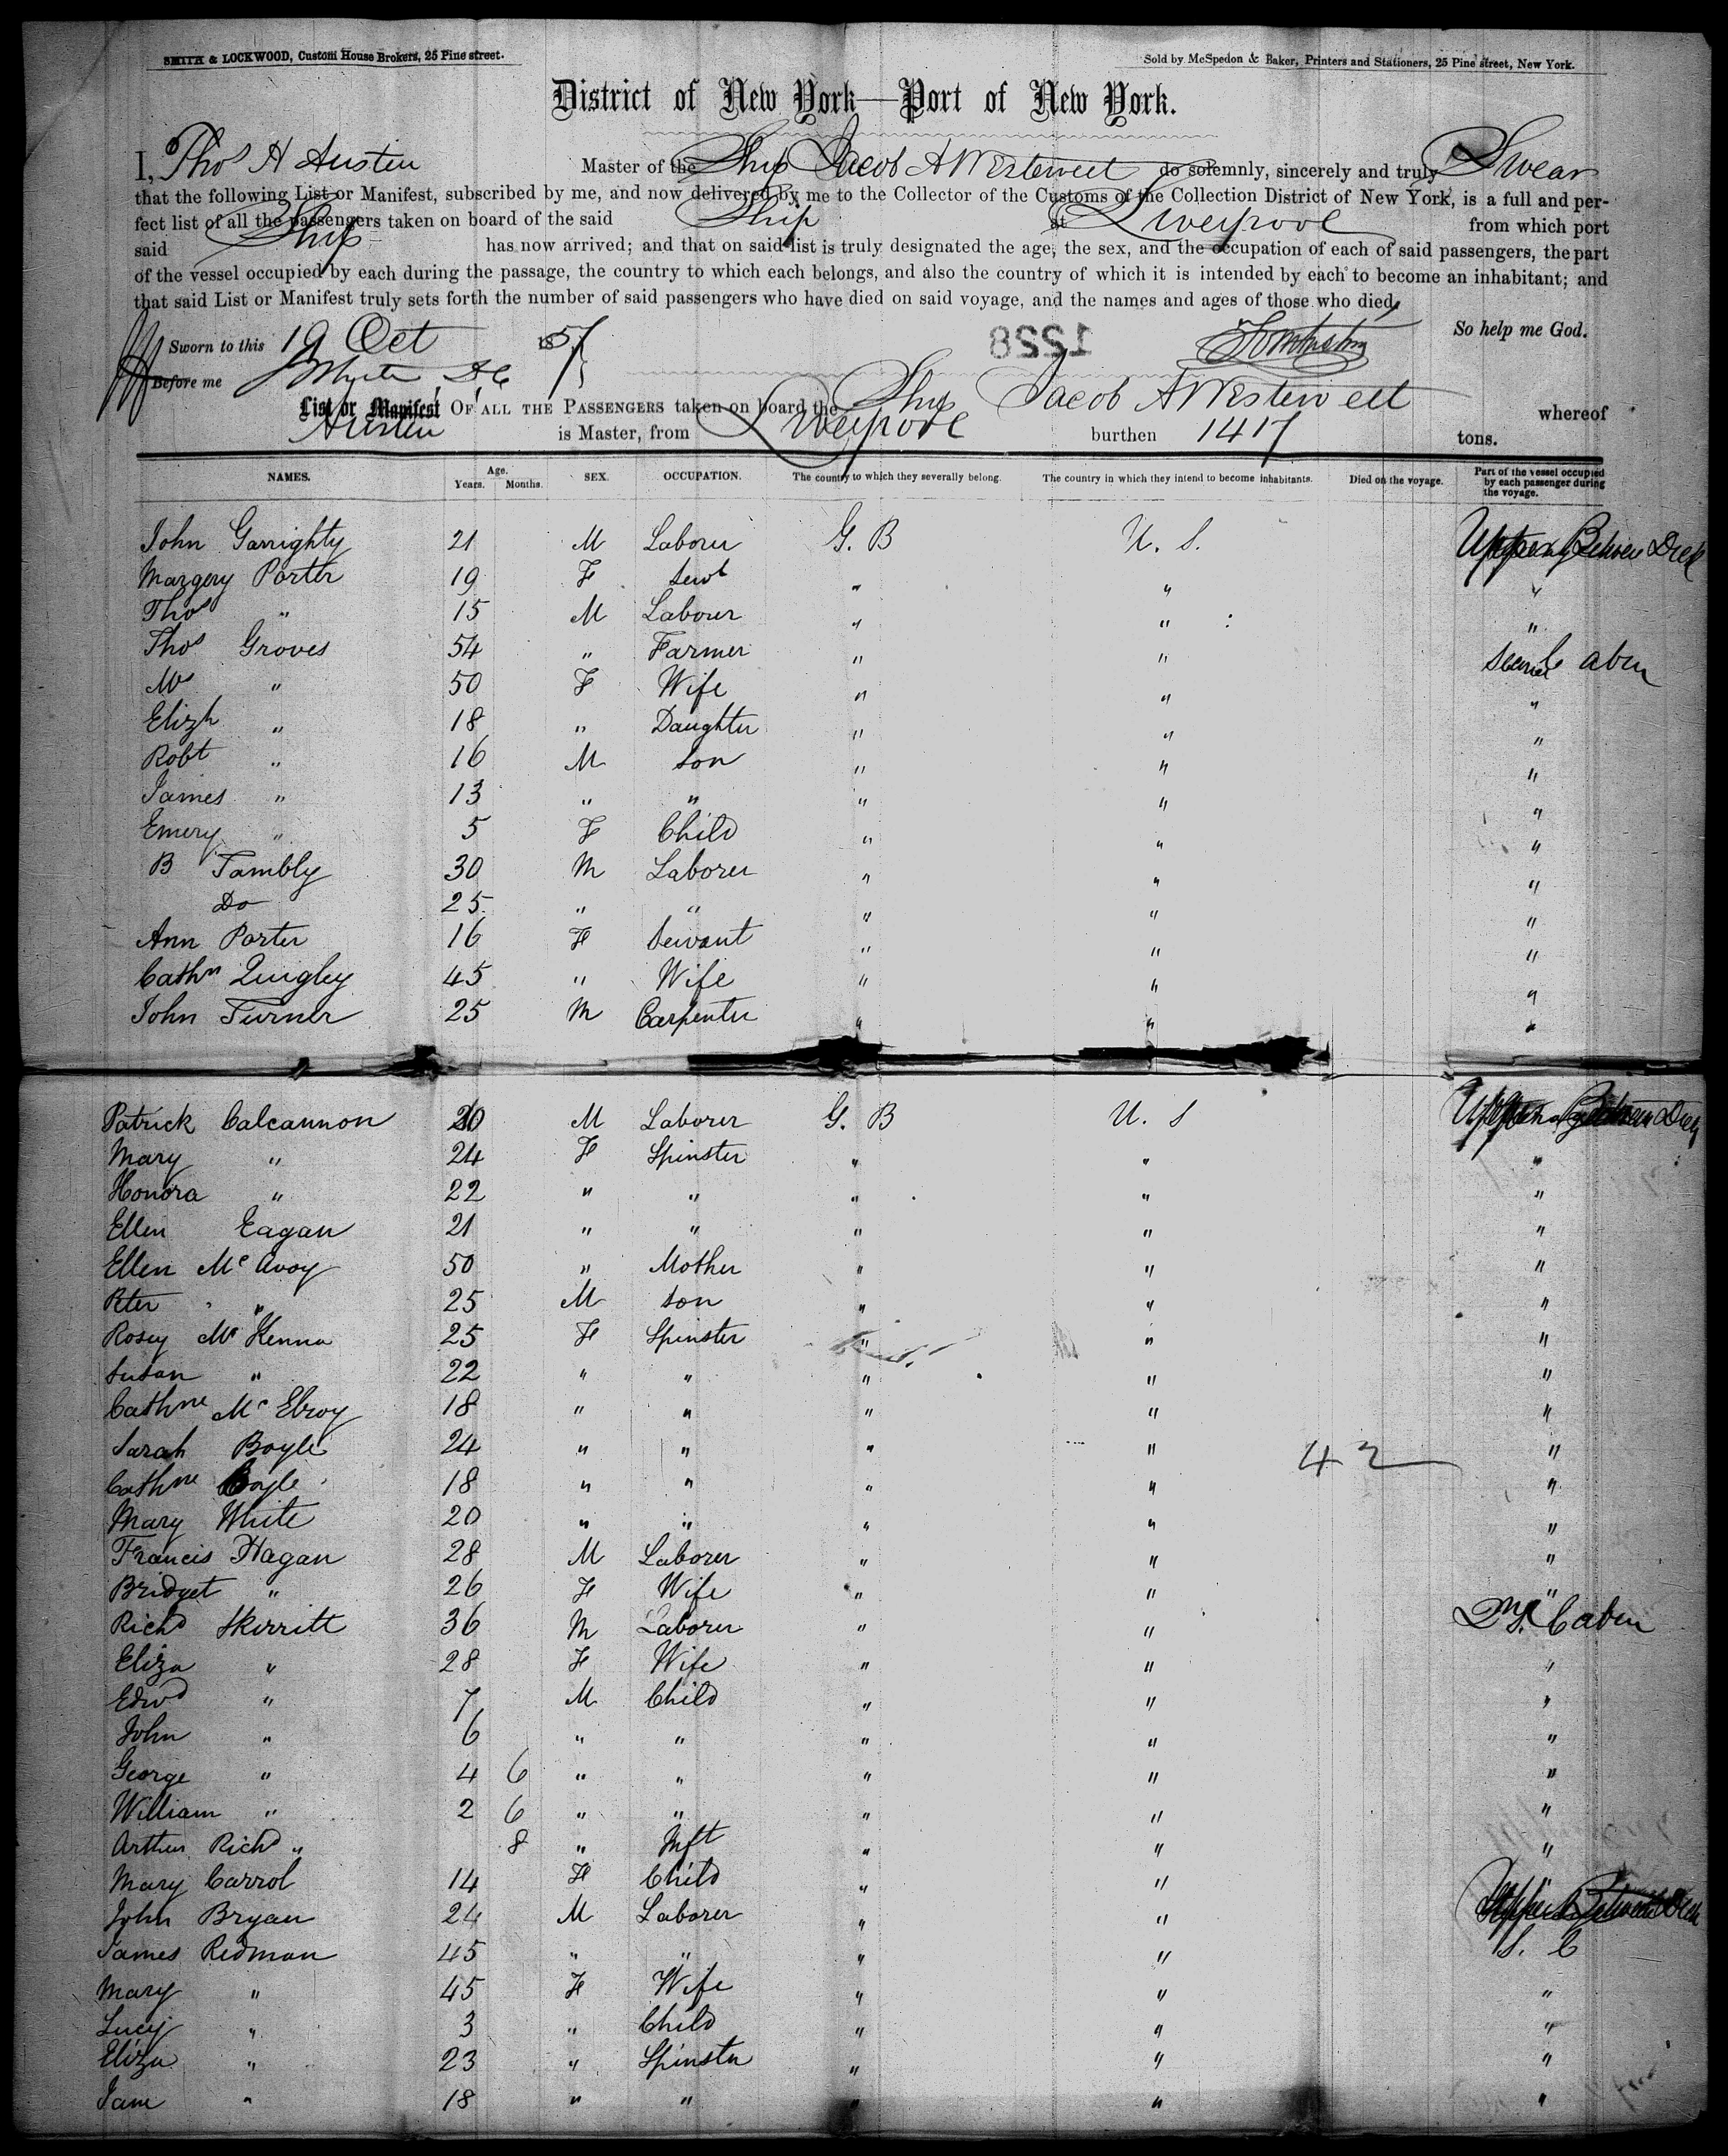 SMITH & LOCKWOOD, Custom House Brokers, 25 Pine street.
Sold by McSpedon & Baker, Printers and Stationers, 25 Pine street, New York.
District of New York—Port of New York.
I, Thos H Austin Master of the Ship Jacob A Westervelt do solemnly, sincerely and truly Swear
that the following List or Manifest, subscribed by me, and now delivered by me to the Collector of the Customs of the Collection District of New York, is a full and per-
fect list of all the passengers taken on board of the said Ship at Liverpool from which port
said Ship has now arrived; and that on said list is truly designated the age, the sex, and the occupation of each of said passengers, the part
of the vessel occupied by each during the passage, the country to which each belongs, and also the country of which it is intended by each to become an inhabitant; and
that said List or Manifest truly sets forth the number of said passengers who have died on said voyage, and the names and ages of those who died.
So help me God.
Sworn to this 19 Oct 1857
1228
Before me
List or Manifest OF ALL THE PASSENGERS taken on board the Ship Jacob A Westervelt whereof
Austin is Master, from Liverpool burthen 1417 tons.
NAMES. Age. Years. Months. SEX. OCCUPATION. The country to which they severally belong. The country in which they intend to become inhabitants. Died on the voyage. Part of the vessel occupied by each passenger during the voyage.
John Garrighty 21 M Laborer G. B U. S. Upper Between Deck
Margery Porter 19 F Servt " " "
Thos " 15 M Labourer " " "
Thos Groves 54 " Farmer " " Second Cabin
Mrs " 50 F Wife " " "
Elizh " 18 " Daughter " " "
Robt " 16 M Son " " "
James " 13 " " " " "
Emery " 5 F Child " " "
B Tambly 30 M Laborer " " "
Do 25 " " " " "
Ann Porter 16 F Servant " " "
Cathn Quigley 45 " Wife " " "
John Turner 25 M Carpenter " " "
Patrick Calcannon 20 M Laborer G. B U. S Upper Between Deck
Mary " 24 F Spinster " " "
Honora " 22 " " " " "
Ellen Eagan 21 " " " " "
Ellen McAvoy 50 " Mother " " "
Peter " 25 M Son " " "
Rosey McKenna 25 F Spinster " " "
Susan " 22 " " " " "
Cathne McElroy 18 " " " " "
Sarah Boyle 24 " " " " "
42
Cathne Boyle 18 " " " " "
Mary White 20 " " " " "
Francis Hagan 28 M Laborer " " "
Bridget " 26 F Wife " " "
Richd Skerritt 36 M Laborer " " Cabin
Eliza " 28 F Wife " " "
Edwd " 7 M Child " " "
John " 6 " " " " "
George " 4 6 " " " " "
William " 2 6 " " " " "
Arthur Richd " 8 " Inft " " "
Mary Carrol 14 F Child " "
John Bryan 24 M Laborer " " Upper Between Deck
James Redman 45 " " " " S. C
Mary " 45 F Wife " " "
Lucy " 3 " Child " " "
Eliza " 23 " Spinster " " "
Jane " 18 " " " " "